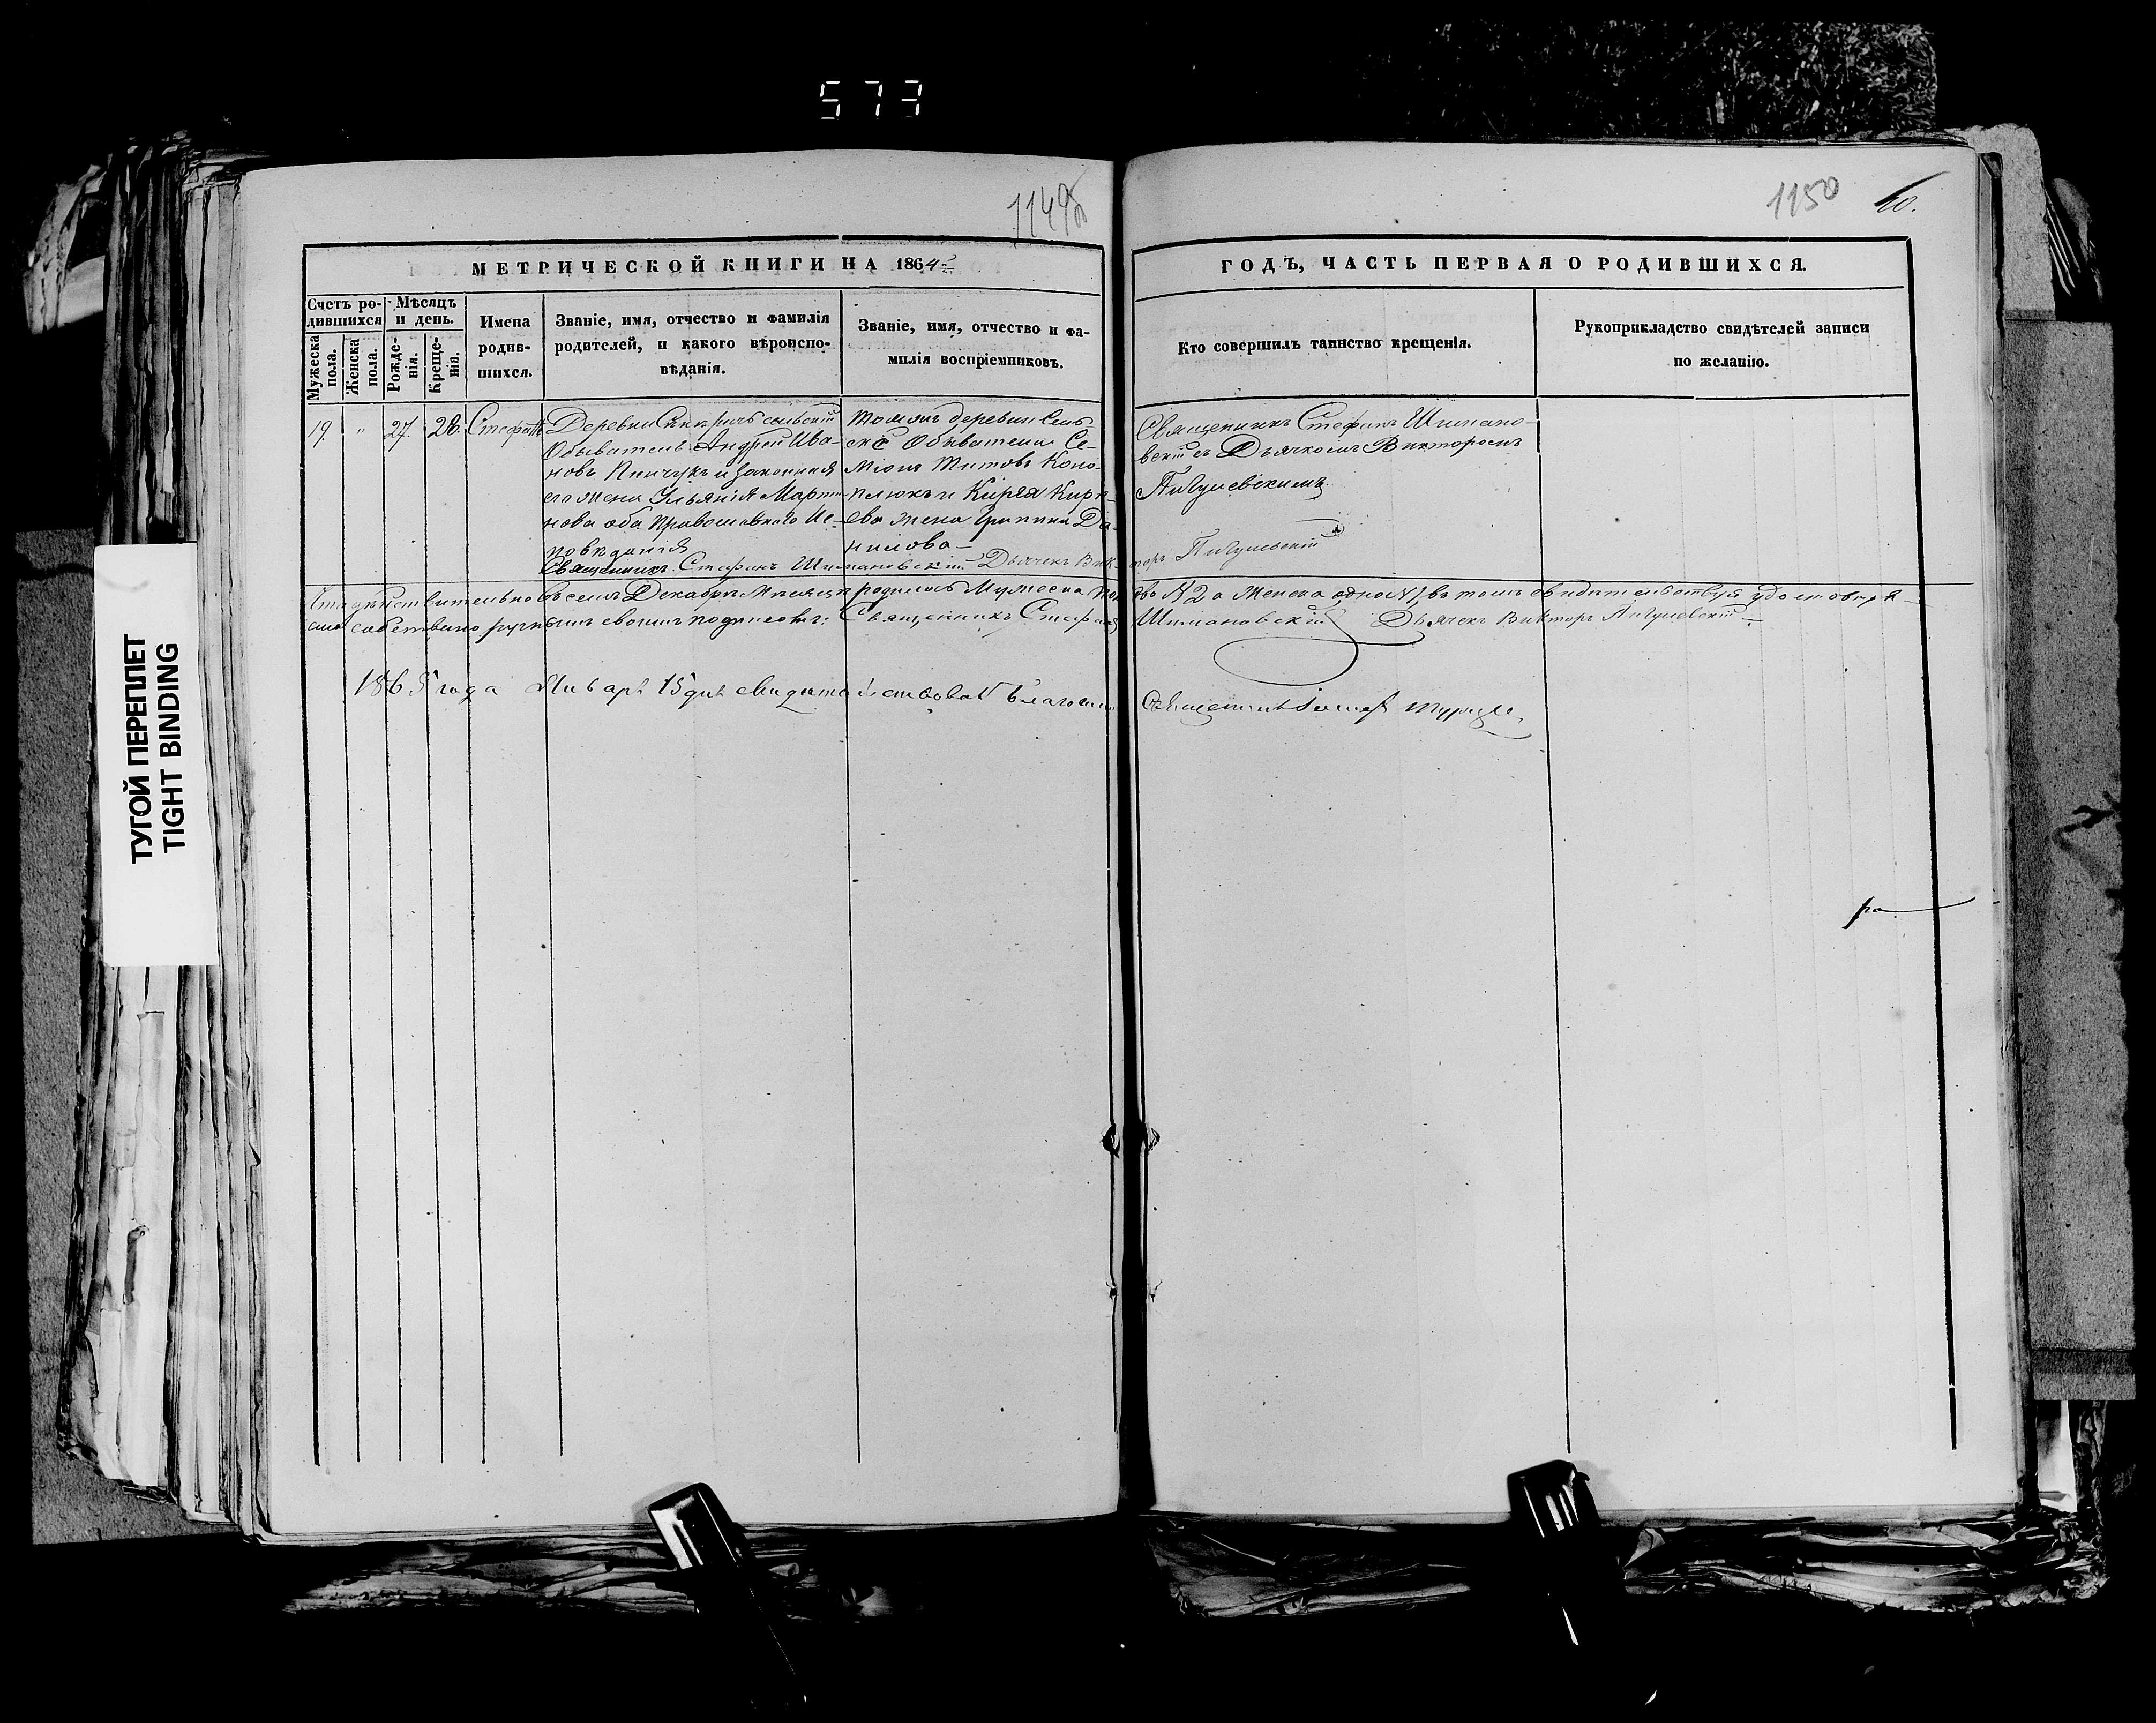 573
1150
МЕТРИЧЕСКОЙ КНИГИ НА 1864
ГОДЪ, ЧАСТЬ ПЕРВАЯ О РОДИВШИХСЯ.
Счетъ ро-
дившихся
Мужеска
пола.
Женска
пола.
Мѣсяцъ
и день.
Рожде-
нія.
Креще-
нія.
Имена
родив-
шихся.
Званіе, имя, отчество и фамилія
родителей, и какого вѣроиспо-
вѣданія.
Званіе, имя, отчество и фа-
милія воспріемниковъ.
Кто совершилъ таинство крещенія.
Рукоприкладство свидѣтелей записи
по желанію.
19. " 27. 28. Стефанъ
Деревни сельскій
Обыватель Андрей Ива-
новъ Пинчукъ и законная
его жена Мартi-
нова оба Православнаго Ис-
повѣданія
Тойжъ деревни Сель-
скіе Обыватели Се-
міонъ Титовъ Коно-
плюкъ и Кирея Кирі-
ева жена Да-
нилова
Священникъ Стефанъ Шимано-
вскій съ Дьячкомъ Викторомъ
Пигулевскимъ
Священникъ Стефанъ Шимановскій Дьячекъ Викторъ Пигулевскій
Что дѣйствительно въ семъ Декабрѣ Мѣсяцѣ родилось Мужеска два №2 а Женска одно №1, въ томъ свидѣтельствуя удостовѣря-
емъ собственно ручнымъ своимъ подписомъ: Священникъ Стефанъ Шимановскій Дьячекъ Викторъ Пигулевскій
1865 года Январ 15 дня свидѣтельствовалъ Священникъ
ТУГОЙ ПЕРЕПЛЕТ
TIGHT BINDING